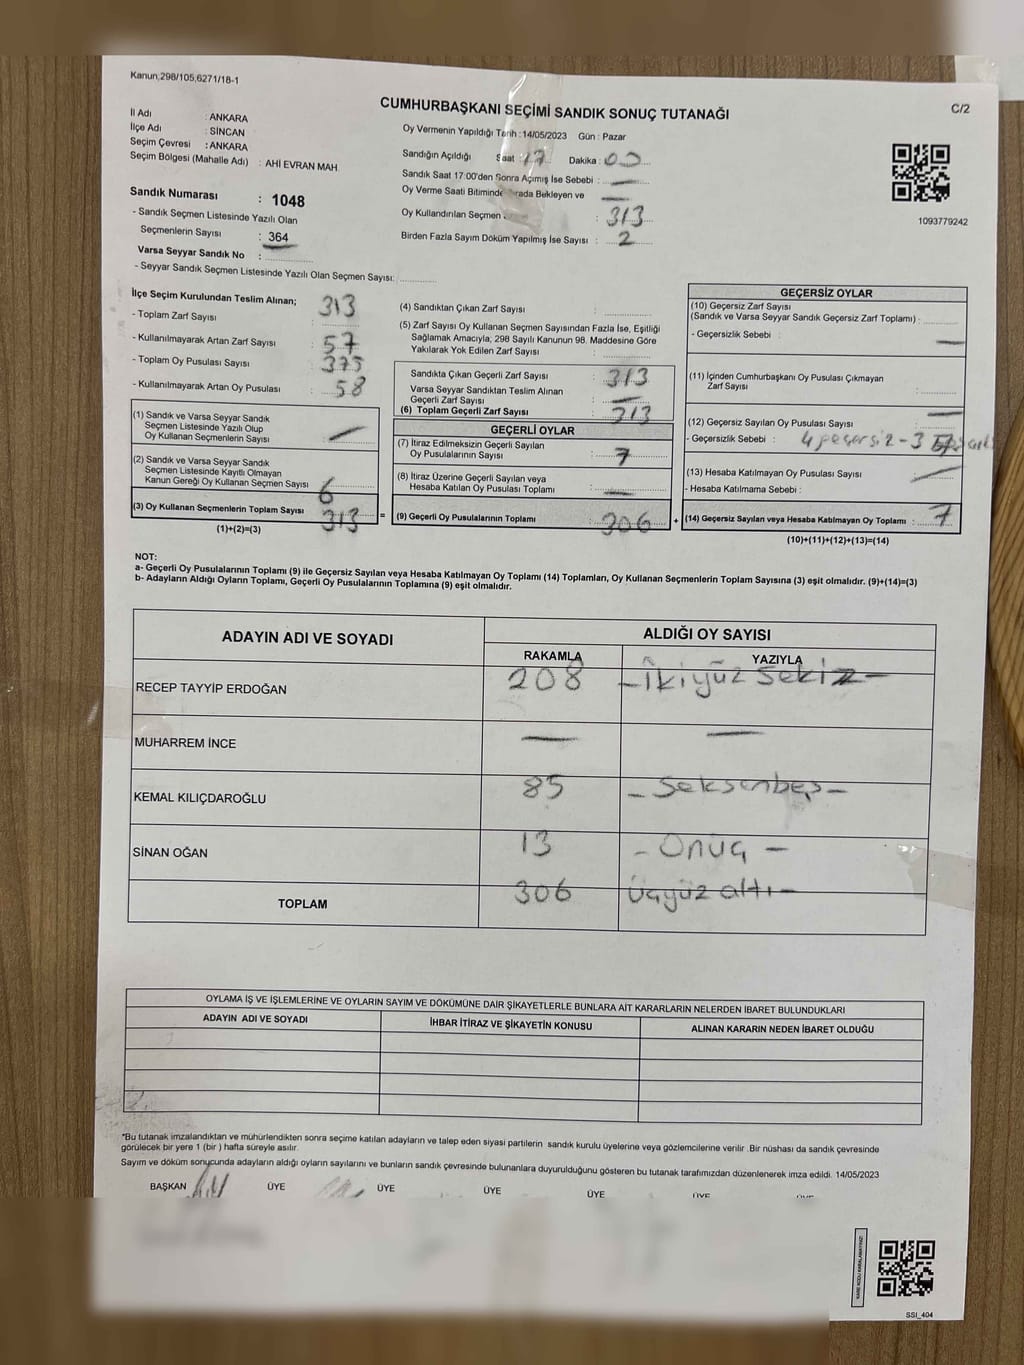 Kanun,298/105,6271/18-1
CUMHURBAŞKANI SEÇİMİ SANDIK SONUÇ TUTANAĞI
C/2
İl Adı : ANKARA
İlçe Adı : SİNCAN
Seçim Çevresi : ANKARA
Seçim Bölgesi (Mahalle Adı) : AHİ EVRAN MAH.
Sandık Numarası : 1048
- Sandık Seçmen Listesinde Yazılı Olan
Seçmenlerin Sayısı : 364
Varsa Seyyar Sandık No :
- Seyyar Sandık Seçmen Listesinde Yazılı Olan Seçmen Sayısı:
Oy Vermenin Yapıldığı Tarih :14/05/2023 Gün : Pazar
Sandığın Açıldığı Saat : 17 Dakika : 00
Sandık Saat 17:00'den Sonra Açımış İse Sebebi : —
Oy Verme Saati Bitiminde Sırada Bekleyen ve —
Oy Kullandırılan Seçmen : 313
Birden Fazla Sayım Döküm Yapılmış İse Sayısı : 2
1093779242
İlçe Seçim Kurulundan Teslim Alınan;
- Toplam Zarf Sayısı 313
- Kullanılmayarak Artan Zarf Sayısı : 57
- Toplam Oy Pusulası Sayısı : 375
- Kullanılmayarak Artan Oy Pusulası : 58
(1) Sandık ve Varsa Seyyar Sandık
Seçmen Listesinde Yazılı Olup
Oy Kullanan Seçmenlerin Sayısı : —
(2) Sandık ve Varsa Seyyar Sandık
Seçmen Listesinde Kayıtlı Olmayan
Kanun Gereği Oy Kullanan Seçmen Sayısı 6
(3) Oy Kullanan Seçmenlerin Toplam Sayısı 313 =
(1)+(2)=(3)
(4) Sandıktan Çıkan Zarf Sayısı :
(5) Zarf Sayısı Oy Kullanan Seçmen Sayısından Fazla İse, Eşitliği
Sağlamak Amacıyla, 298 Sayılı Kanunun 98. Maddesine Göre
Yakılarak Yok Edilen Zarf Sayısı :
Sandıkta Çıkan Geçerli Zarf Sayısı : 313
Varsa Seyyar Sandıktan Teslim Alınan
Geçerli Zarf Sayısı : —
(6) Toplam Geçerli Zarf Sayısı : 313
GEÇERLİ OYLAR
(7) İtiraz Edilmeksizin Geçerli Sayılan
Oy Pusulalarının Sayısı : 7
(8) İtiraz Üzerine Geçerli Sayılan veya
Hesaba Katılan Oy Pusulası Toplamı : —
(9) Geçerli Oy Pusulalarının Toplamı : 306 +
GEÇERSİZ OYLAR
(10) Geçersiz Zarf Sayısı
(Sandık ve Varsa Seyyar Sandık Geçersiz Zarf Toplamı) :
- Geçersizlik Sebebi : —
(11) İçinden Cumhurbaşkanı Oy Pusulası Çıkmayan
Zarf Sayısı : —
(12) Geçersiz Sayılan Oy Pusulası Sayısı :
- Geçersizlik Sebebi : 4 geçersiz - 3
(13) Hesaba Katılmayan Oy Pusulası Sayısı : —
- Hesaba Katılmama Sebebi :
(14) Geçersiz Sayılan veya Hesaba Katılmayan Oy Toplamı : 7
(10)+(11)+(12)+(13)=(14)
NOT:
a- Geçerli Oy Pusulalarının Toplamı (9) ile Geçersiz Sayılan veya Hesaba Katılmayan Oy Toplamı (14) Toplamları, Oy Kullanan Seçmenlerin Toplam Sayısına (3) eşit olmalıdır. (9)+(14)=(3)
b- Adayların Aldığı Oyların Toplamı, Geçerli Oy Pusulalarının Toplamına (9) eşit olmalıdır.
ADAYIN ADI VE SOYADI ALDIĞI OY SAYISI
RAKAMLA YAZIYLA
RECEP TAYYİP ERDOĞAN 208 - İkiyüz sekiz -
MUHARREM İNCE — —
KEMAL KILIÇDAROĞLU 85 - Seksenbeş -
SİNAN OĞAN 13 - Onüç -
TOPLAM 306 Üçyüz altı -
OYLAMA İŞ VE İŞLEMLERİNE VE OYLARIN SAYIM VE DÖKÜMÜNE DAİR ŞİKAYETLERLE BUNLARA AİT KARARLARIN NELERDEN İBARET BULUNDUKLARI
ADAYIN ADI VE SOYADI İHBAR İTİRAZ VE ŞİKAYETİN KONUSU ALINAN KARARIN NEDEN İBARET OLDUĞU
*Bu tutanak imzalandıktan ve mühürlendikten sonra seçime katılan adayların ve talep eden siyasi partilerin sandık kurulu üyelerine veya gözlemcilerine verilir .Bir nüshası da sandık çevresinde
görülecek bir yere 1 (bir ) hafta süreyle asılır.
Sayım ve döküm sonucunda adayların aldığı oyların sayılarını ve bunların sandık çevresinde bulunanlara duyurulduğunu gösteren bu tutanak tarafımızdan düzenlenerek imza edildi. 14/05/2023
BAŞKAN ÜYE ÜYE ÜYE ÜYE ÜYE ÜYE
KARE KODU KARALAMAYINIZ!
SSI_404